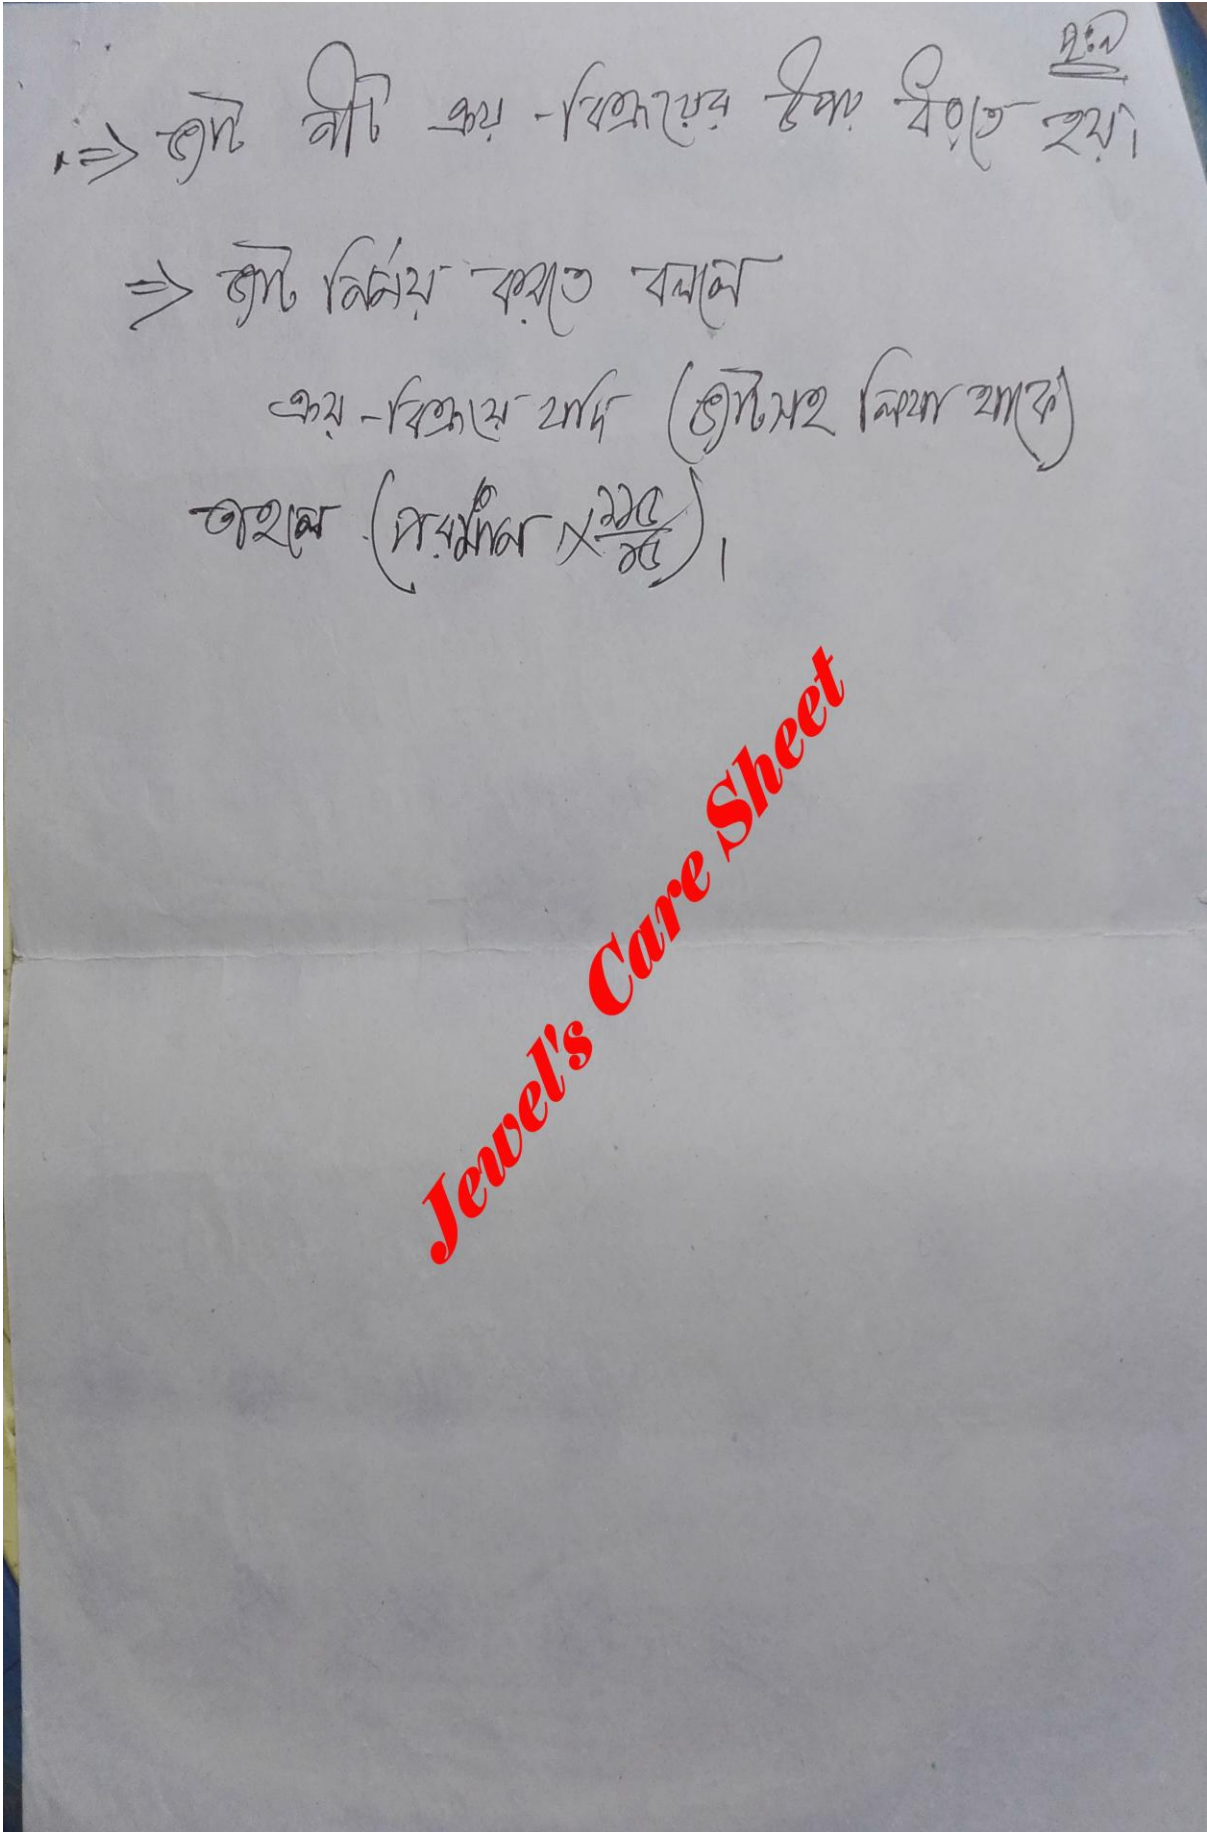 পৃঃ৭
⇒ ভ্যাট নীট ক্রয়-বিক্রয়ের উপর ধরতে হয়।
⇒ ভ্যাট নির্নয় করতে বললে
ক্রয়-বিক্রয়ে যদি (ভ্যাটসহ লিখা থাকে)
তাহলে (পরিমান × ১১৫/১৫)।
Jewel's Care Sheet